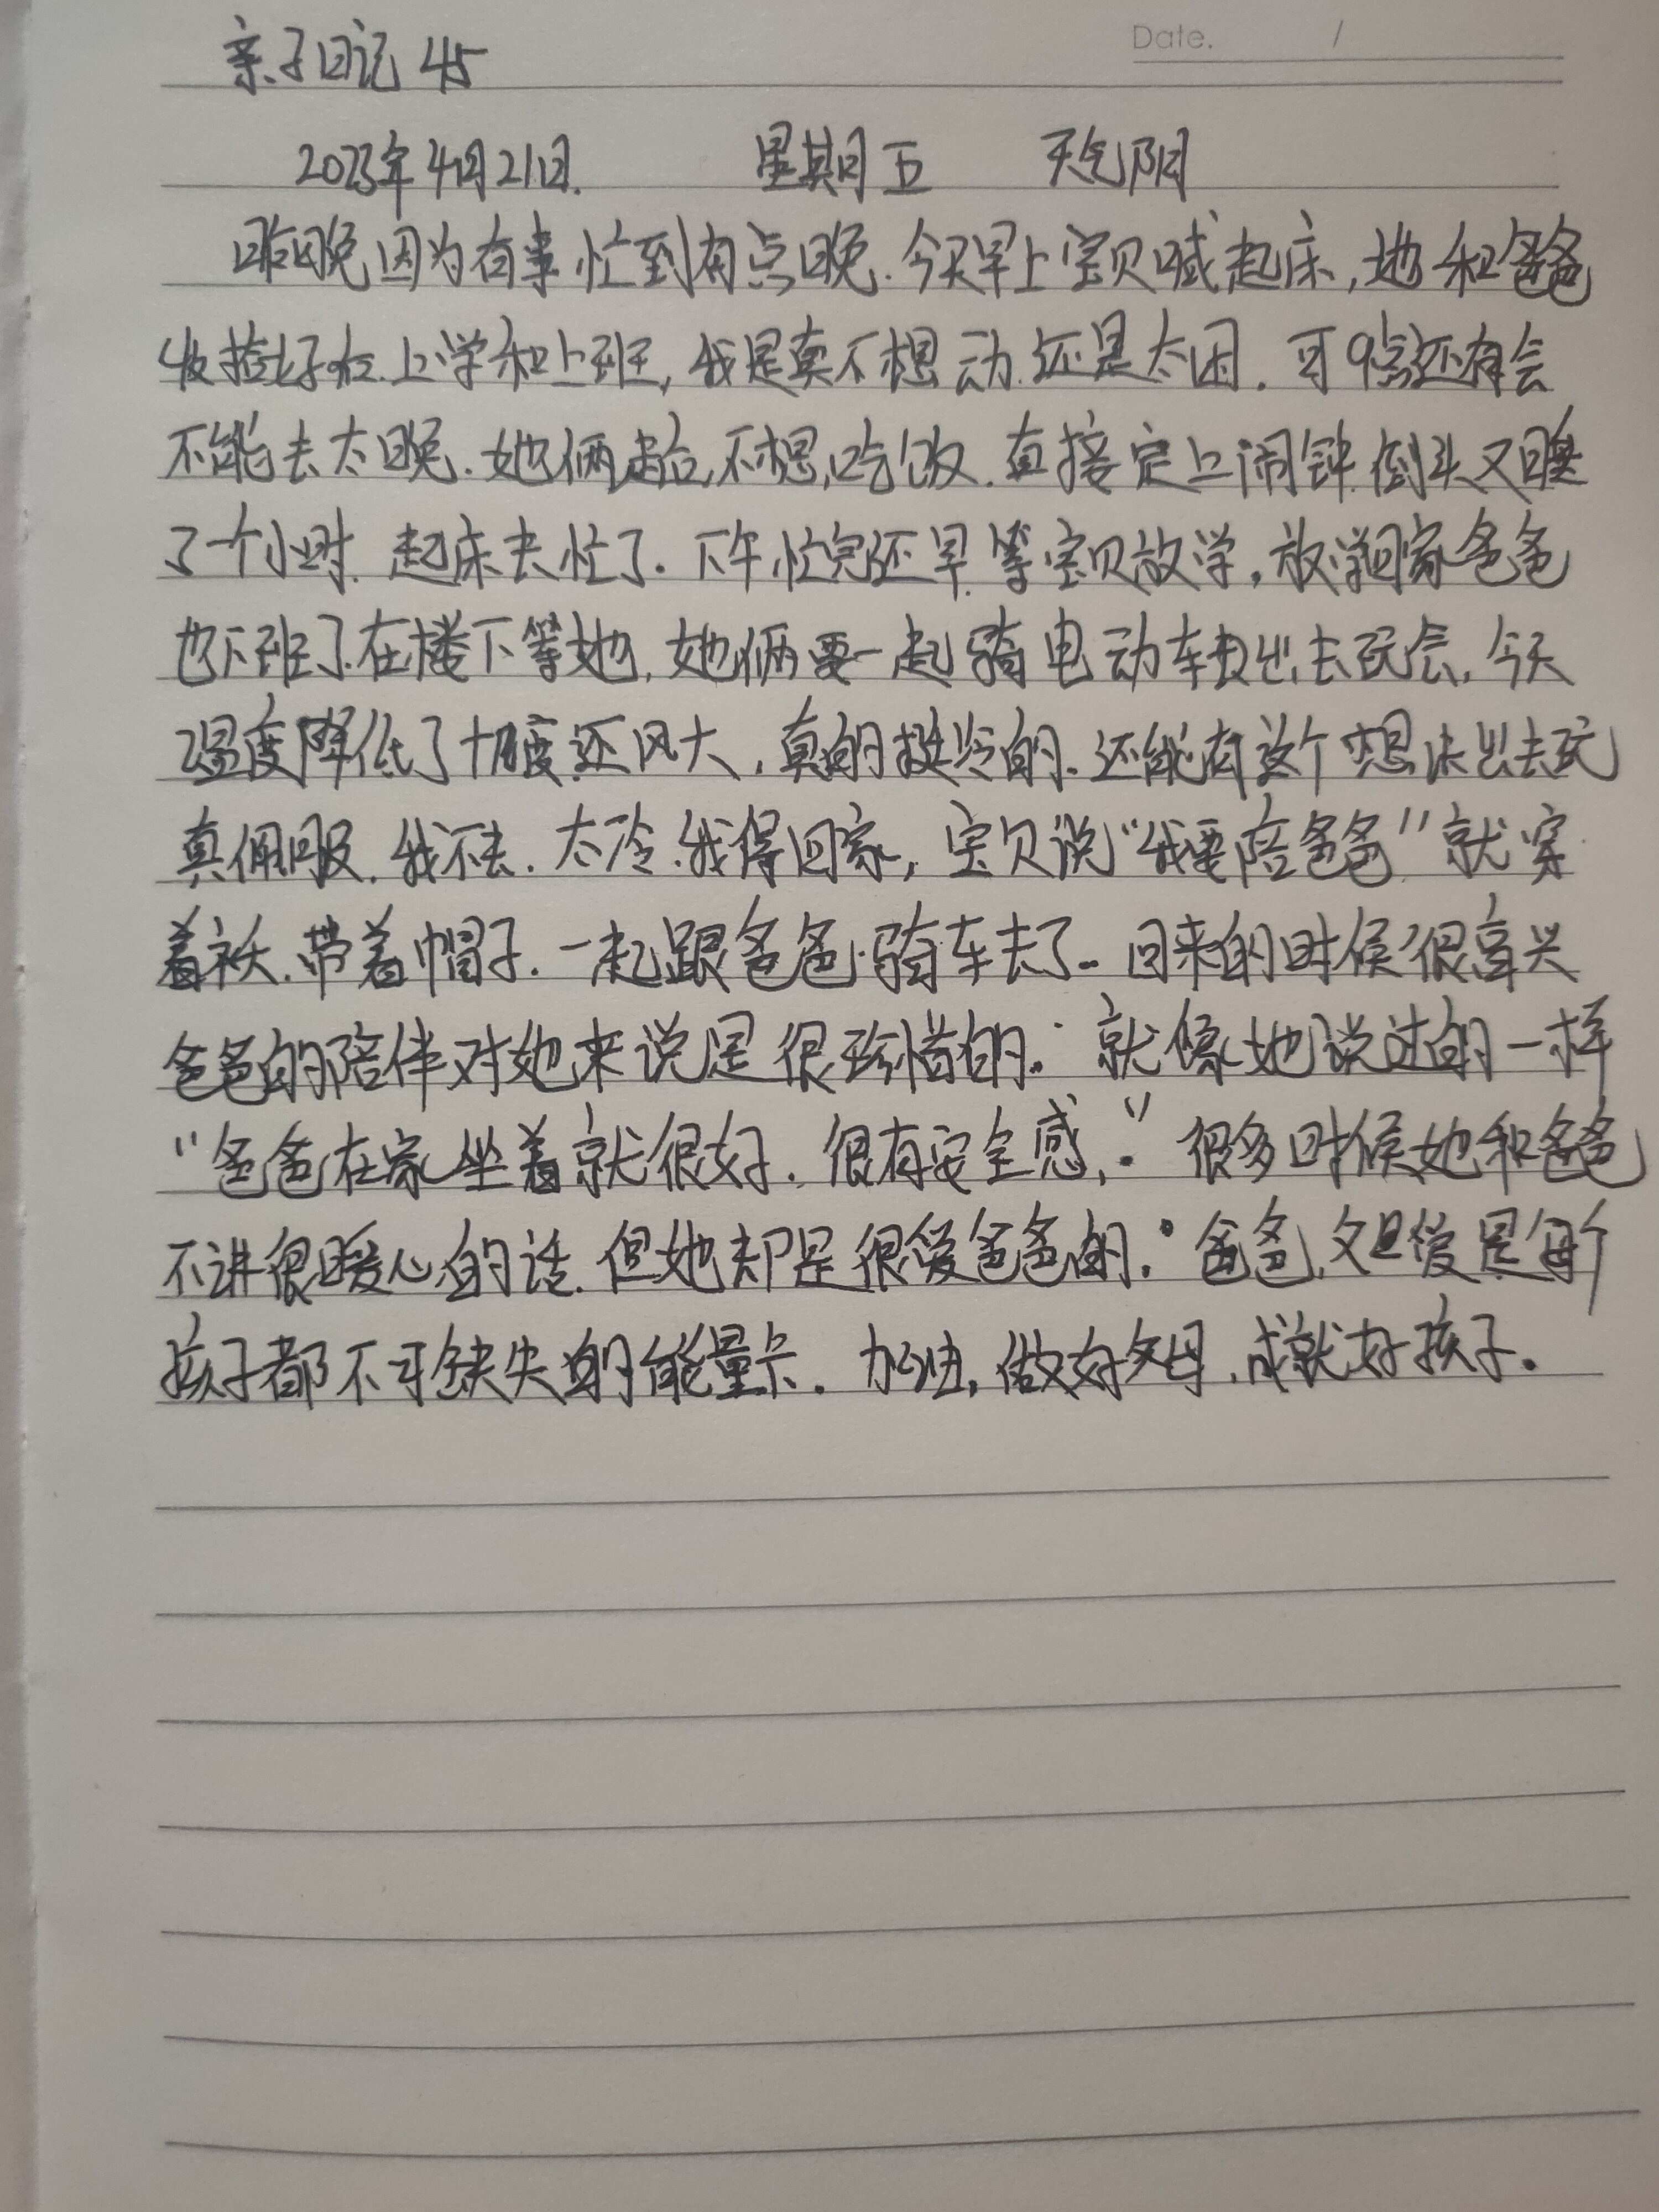 亲子日记 45
Date. /
2023年4月21日. 星期五 天气阴
昨晚因为有事忙到有点晚.今天早上宝贝喊起床,她和爸爸
收拾好在上学和上班,我是真不想动.还是太困.可9点还有会
不能去太晚.她俩走后,不想吃饭.直接定上闹钟.倒头又睡
了一个小时.起床去忙了.下午忙完还早.等宝贝放学,放学回家爸爸
也下班了.在楼下等她,她俩要一起骑电动车出去玩会,今天
温度降低了十度还风大,真的挺冷的.还能有这个想法出去玩
真佩服.我不去.太冷.我得回家,宝贝说“我要陪爸爸”就穿
着袄.带着帽子.一起跟爸爸骑车去了.回来的时候很高兴
爸爸的陪伴对她来说是很珍惜的.就像她说过的一样
“爸爸在家坐着就很好.很有安全感,.”很多时候她和爸爸
不讲很暖心的话.但她却是很爱爸爸的.爸爸,父爱是每个
孩子都不可缺失的能量卡.加油,做好父母,成就好孩子.